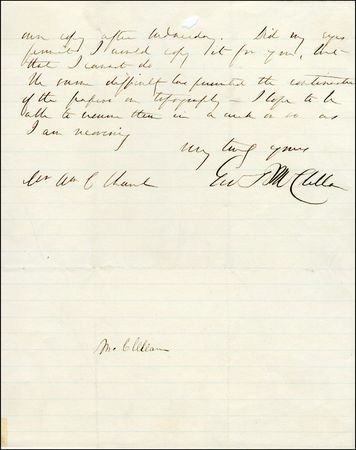 own copy after Wednesday. Did my eyes
permit I would copy it for you, but
that I cannot do
The same difficulty has prevented the continuation
of the papers on topography – I hope to be
able to resume them in a week or so as
I am recovering
Very truly yours
Geo B McClellan
Wm C Church
McClellan